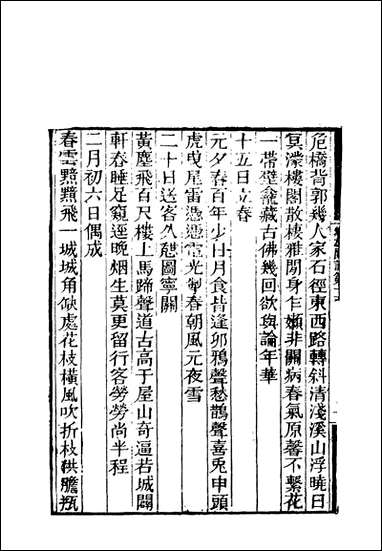 危橋背郭幾人家石徑東西路轉斜清淺溪山浮曉日
冥濛樓閣散棲鴉閒身乍嬾非關病春氣原馨不繫花
一帶壁龕藏古佛幾回欲與論年華
十五日立春
元夕春百年少廿月食皆逢卯鴉聲愁鵲聲喜兎申頭
虎曳尾雷憑憑電光掣春朝風元夜雪
二十日送客久憇圖寧關
黃塵飛百尺樓上馬蹄聲道古高于屋山奇逼若城闗
軒春睡足窺逕晚烟生莫更留行客勞勞尚半程
二月初六日偶成
春雲黯黯飛一城城角缺處花枝橫風吹折枝供膽瓶